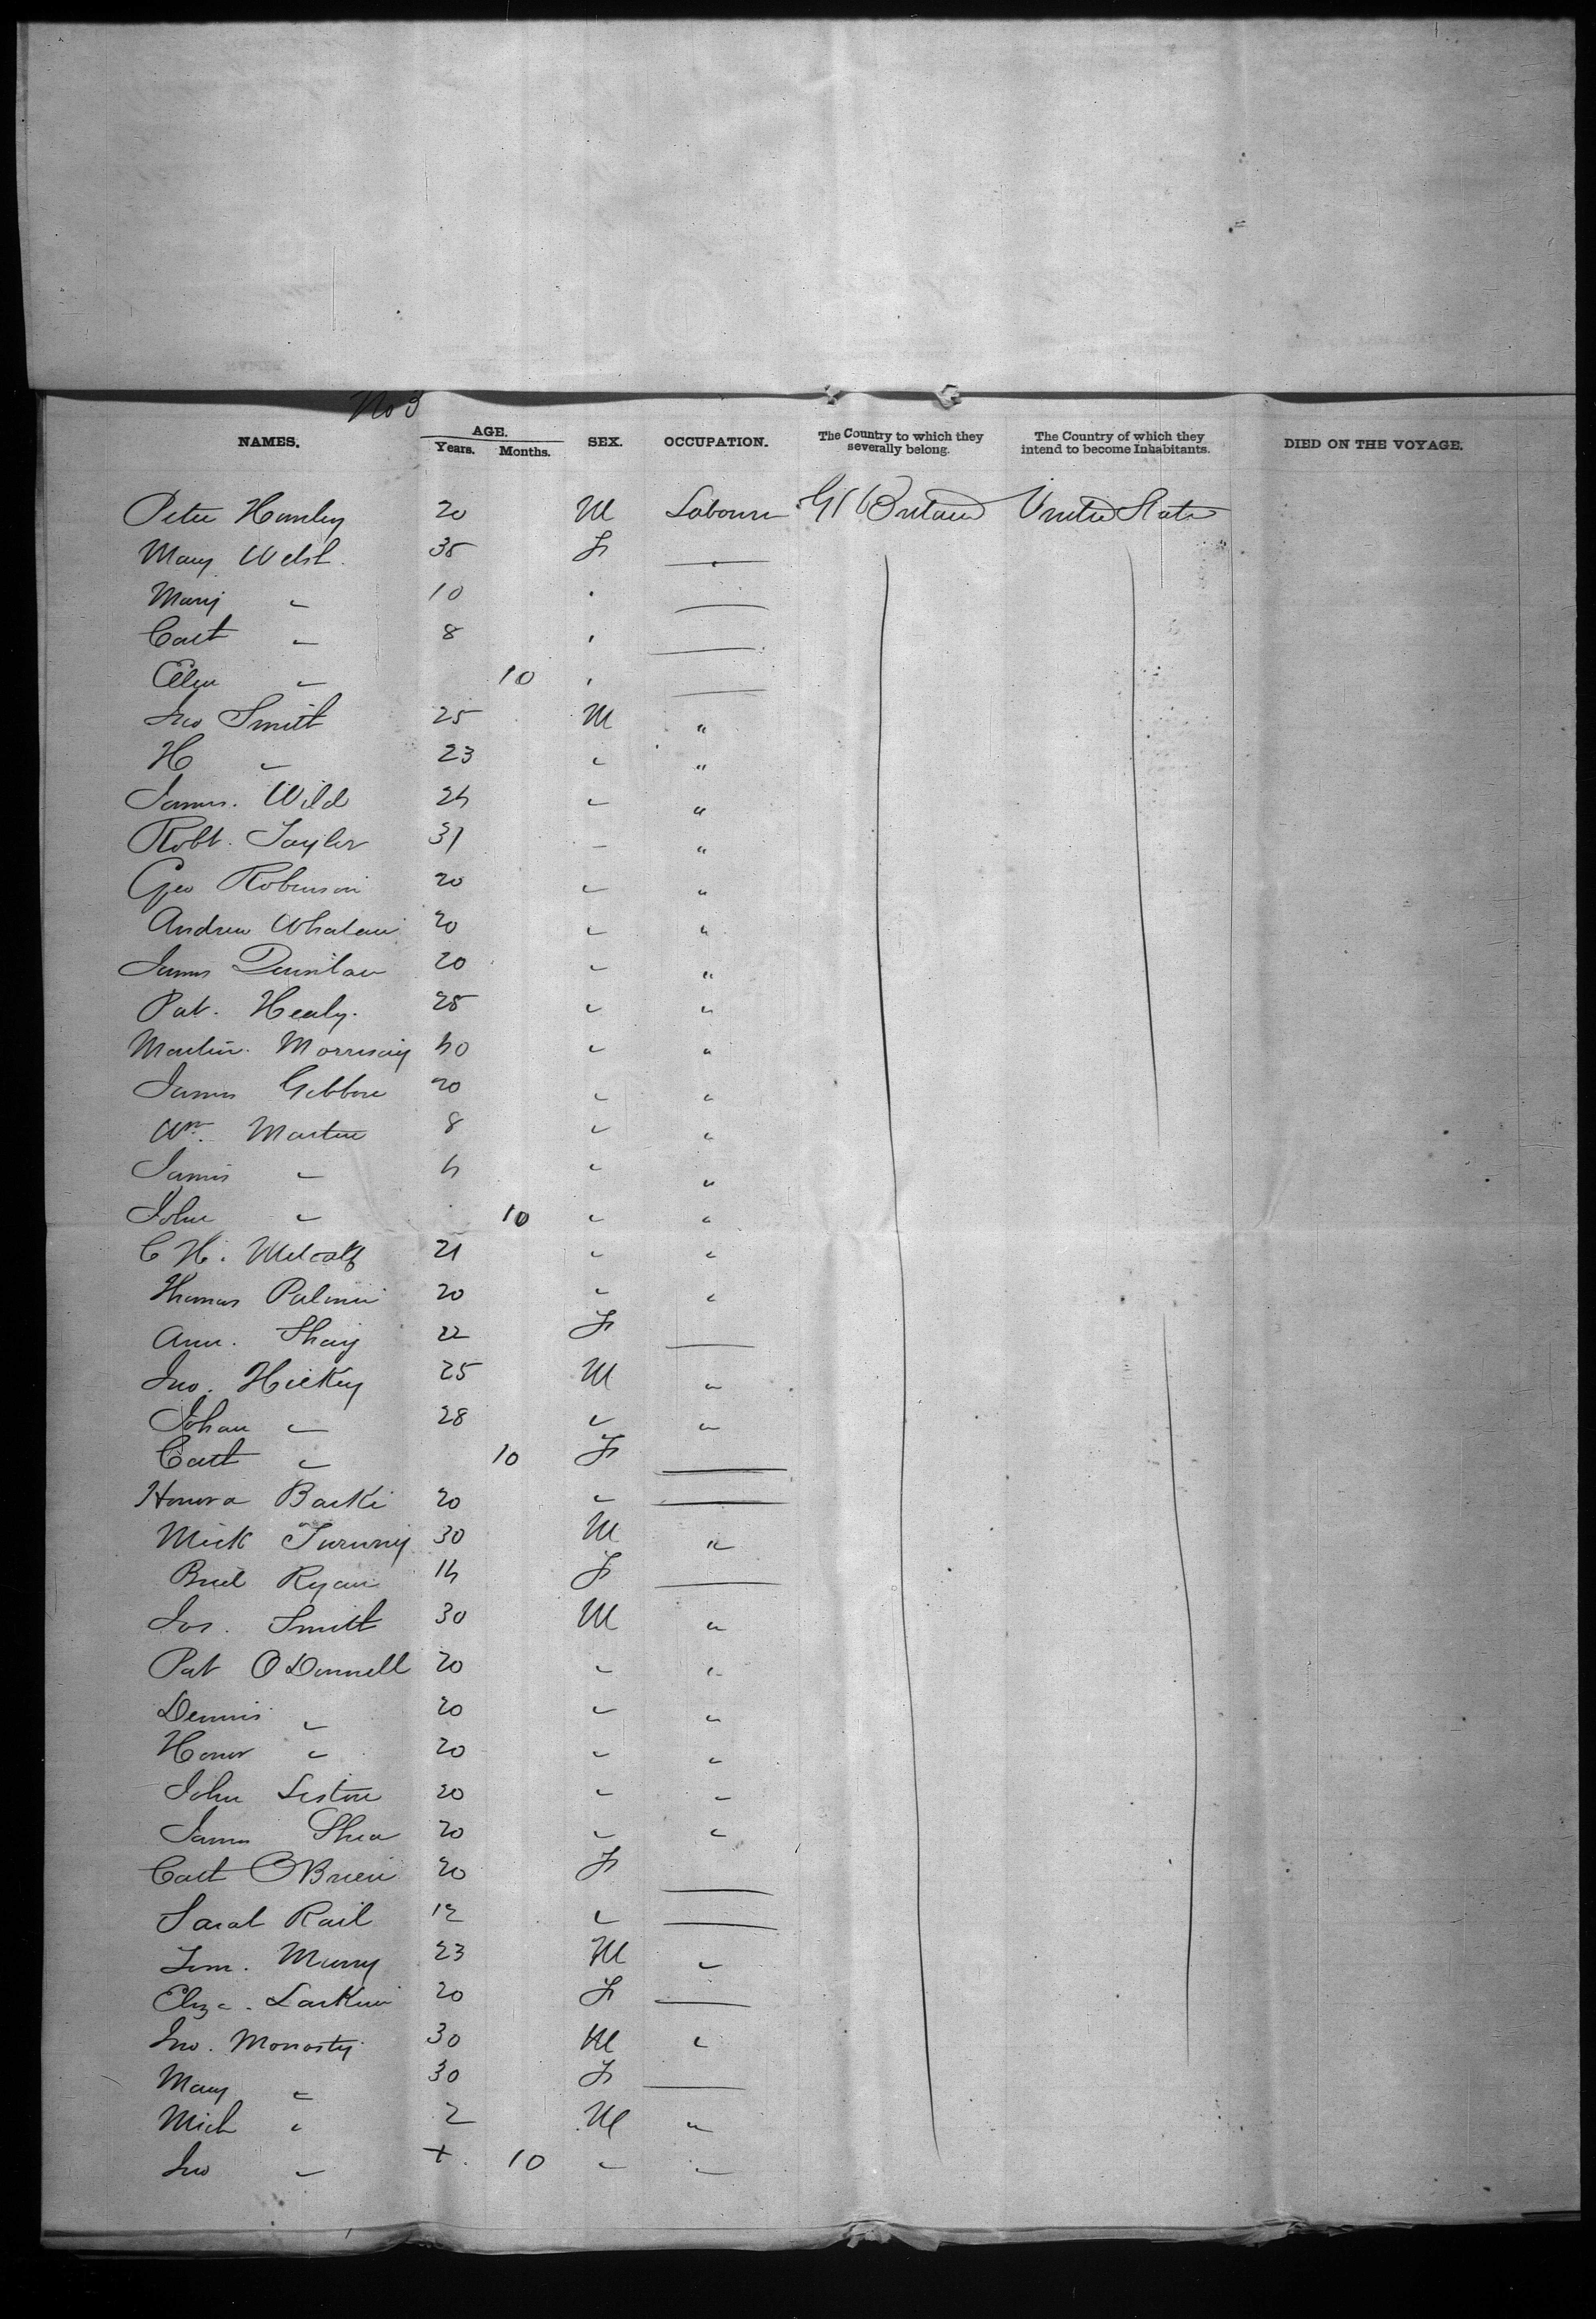 No 3
NAMES. AGE. Years. Months. SEX. OCCUPATION. The Country to which they severally belong. The Country of which they intend to become Inhabitants. DIED ON THE VOYAGE.
Peter Hanley 20 M Labourer Gt Britain United States
Mary Welsh 35 F —
Mary " 10 " —
Cath " 8 " —
Ellen " 10 " —
Jno Smith 25 M "
H " 23 " "
James Wild 24 " "
Robt. Taylor 31 " "
Geo Robinson 20 " "
Andrew Whalan 20 " "
James 20 " "
Pat. Healy. 25 " "
Martin Morrisay 40 " "
James Gibbon 20 " "
Wm. Martin 8 " "
James " 4 " "
John " 10 " "
C H. Metcalf 21 " "
Thomas Palmer 20 " "
Ann. Shay 22 F —
Jno. Hickey 25 M "
Johan " 28 " "
Cath " 10 F —
Honora 20 " —
Mick 30 M "
Brid Ryan 14 F —
Jos. Smith 30 M "
Pat O'Donnell 20 " "
Dennis " 20 " "
Honor " 20 " "
John Liston 20 " "
James Shea 20 " "
Cath O'Brien 20 F —
Sarah Rail 12 " —
Murry 23 M "
Eliza. Larkin 20 F —
Jno. 30 M "
Mary " 30 F —
Mich " 2 M "
Jno " + 10 " "